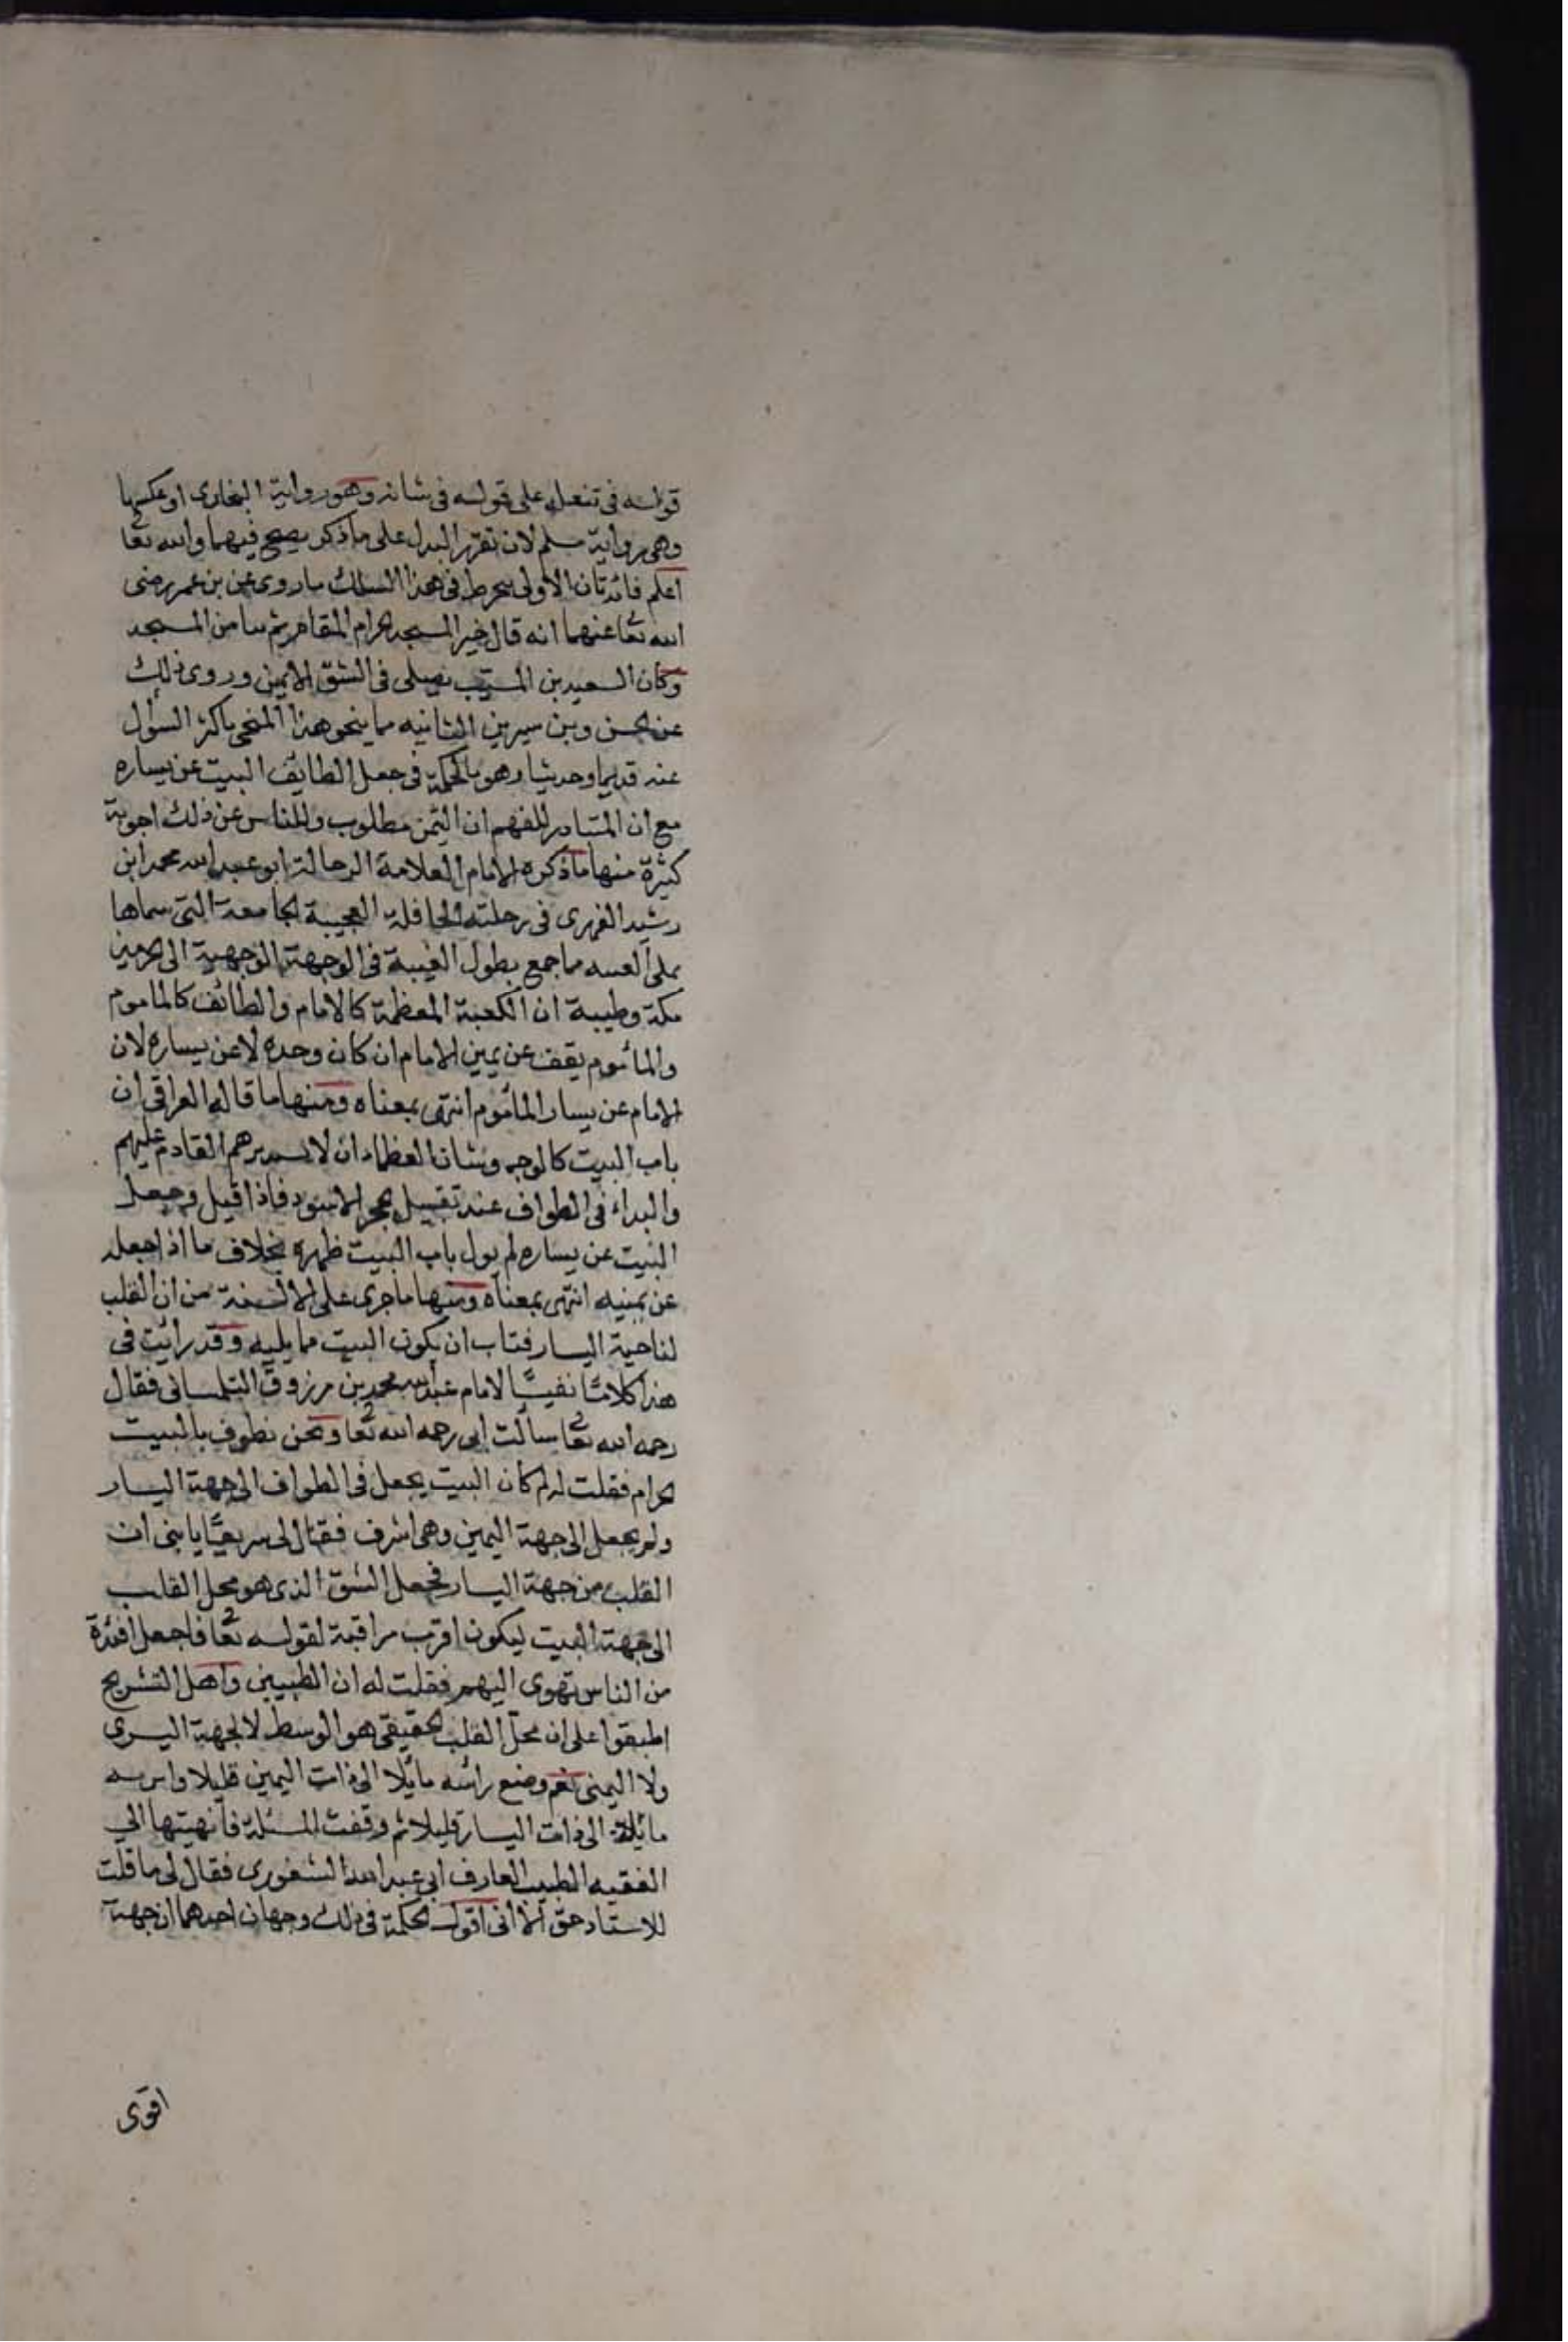 قوله في تنعله على قوله في شانه وهو رواية البخاري او عكسها
وهى رواية مسلم لان تقرير البدل على ما ذكر يصح فيهما والله تعا
اعلم فائدتان الاولى ينخرط في هذا السلك ما روى عن بن عمر رضى
الله تعا عنهما انه قال خير المسجد الحرام المقام ثم ميامن المسجد
وكان السعيد بن المسيب يصلى في الشق الايمن وروى ذلك
عن الحسن وبن سيرين الثانيه مما ينحو هذا المنحى ما كثر السوال
عنه قديما وحديثا وهو ما الحكمة في جعل الطايف البيت عن يساره
مع ان المتبادر للفهم ان التيمن مطلوب وللناس عن ذلك اجوبة
كثيرة منها ما ذكره الامام العلامة الرحالة ابو عبد الله محمد ابن
رشيد الفهرى في رحلته الحافلة العجيبة الجامعة التى سماها
بملى العيبه مما جمع بطول الغيبة في الوجهة الوجهية الى الحرمين
مكة وطيبة ان الكعبة المعظمة كالامام والطائف كالماموم
والمأموم يقف عن يمين الامام ان كان وحده لا عن يساره لان
الامام عن يسار المأموم انتهى بمعناه ومنها ما قاله العراقى ان
باب البيت كالوجه وشان العظماء ان لا يستدبرهم القادم عليهم
والبداء في الطواف عند تقبيل الحجر الاسود فاذا قبل وجعل
البيت عن يساره لم يول باب البيت ظهره بخلاف ما اذا جعله
عن يمنيه انتهى بمعناه ومنها ما جرى على الالسنة من ان القلب
لناحية اليسار فناسب ان يكون البيت مما يليه وقد رائيت في
هذا كلامًا نفيسًا لامام عبد الله محمد بن مرزوق التلمسانى فقال
رحمه الله تعا سألت ابى رحمه الله تعا ونحن نطوف بالبيت
الحرام فقلت له لم كان البيت يجعل في الطواف الى جهة اليسار
ولم يجعل الى جهة اليمين وهى اشرف فقال لى سريعًا يا بنى ان
القلب من جهة اليسار فجعل الشق الذى هو محل القلب
الى جهة البيت ليكون اقرب مراقبة لقوله تعا فاجعل افئدة
من الناس تهوى اليهم فقلت له ان الطبيبين واهل التشريح
اطبقوا على ان محل القلب الحقيقى هو الوسط لا لجهة اليسرى
ولا اليمنى نعم وضع رأسه مائلا الى ذات اليمين قليلا
مائلة الى ذات اليسار قليلا ثم وقفت المسئلة فأنهيتها الى
الفقيه الطبيب العارف ابى عبد الله الشغورى فقال لى ما قلت
للاستاد حق الا انى اقول الحكمة في ذلك وجهان احدهما ان جهة
اقوى